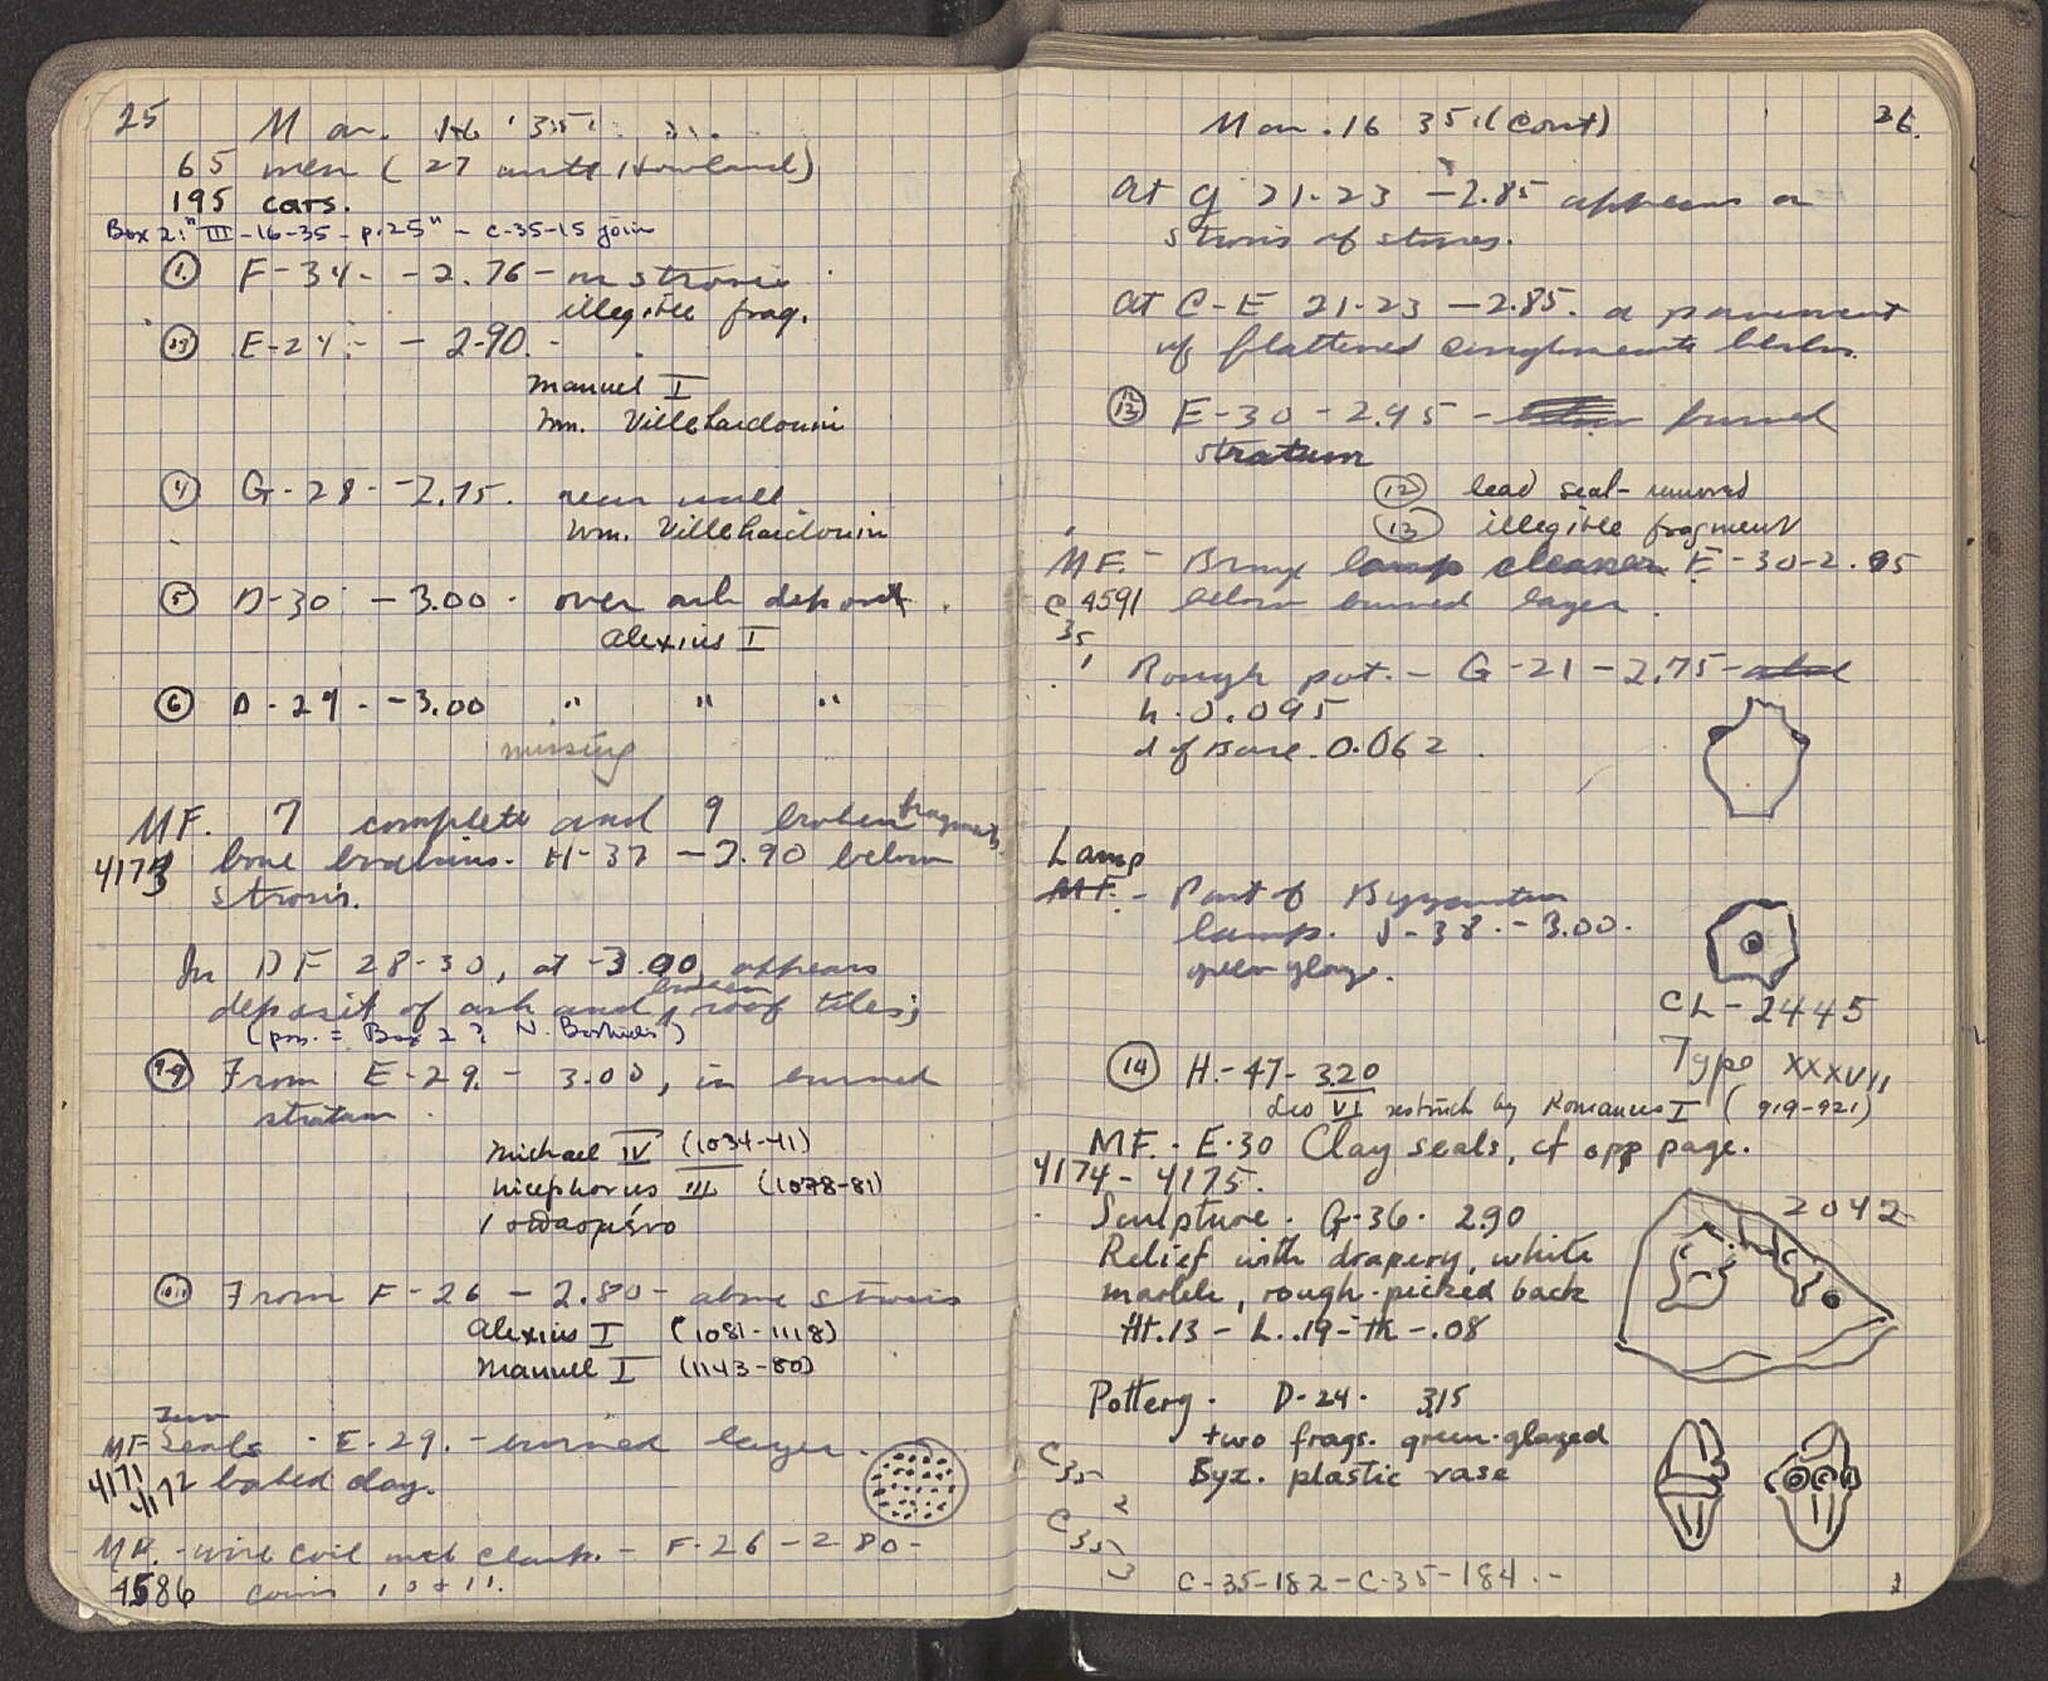 25
Mar. 16 '35
65 men (27 with Howland)
195 cars.
Box 2: "III-16-35-p.25" - C-35-15 join
① F-34- -2.76- in strosis
illegible frag.
②③ E-24- -2.90.-
Manuel I
Wm. Villehardouin
④ G-28- -2.75. near wall
Wm. Villehardouin
⑤ D-30 -3.00. over ash deposit.
Alexius I
⑥ D-29- -3.00 " " "
missing
MF. 7 complete and 9 broken fragments
4173 bone -2.90 below
strosis.
In DF 28-30, at -3.00, appears
deposit of ash and broken roof tiles;
(pos. = Box 2?)
From E-29.- 3.00, in burned
stratum.
Michael IV (1034-41)
Nicephorus III (1078-81)
1 σπασμένο
From F-26 - 2.80- above strosis
Alexius I (1081-1118)
Manuel I (1143-80)
MF Seals. E.29.- burned layer.
4171
4172 baked clay.
MF.- wire coil - F-26-2.80-
4586 coins 10 + 11.
Mar. 16 35 (cont)
26.
At G 21-23 -2.85 appears a
strosis of stones.
At C-E 21-23 -2.85. a pavement
of flattened conglomerate blocks.
⑫⑬ E-30-2.95- burned
stratum
⑫ lead seal- removed
⑬ illegible fragment
MF.- Bronze lamp cleaner E-30-2.95
4591 below burned layer.
C 35 1
Rough pot.- G-21-2.75-
h.0.095
d of Base.0.062
Lamp
MF.- Part of Byzantine
lamp. J-38.-3.00.
green glaze.
CL-2445
Type XXXVII
⑭ H.-47- 3.20
Leo VI restruck by Romanus I (919-921)
MF.- E.30 Clay seals, cf opp page.
4174-4175.
Sculpture. G.36. 2.90
2042
Relief with drapery, white
marble, rough-picked back
Ht.13 - L..19- Th-.08
Pottery. D-24. 3.15
two frags. green-glazed
Byz. plastic vase
C 35 2
C 35 3
C-35-182-C-35-184.-